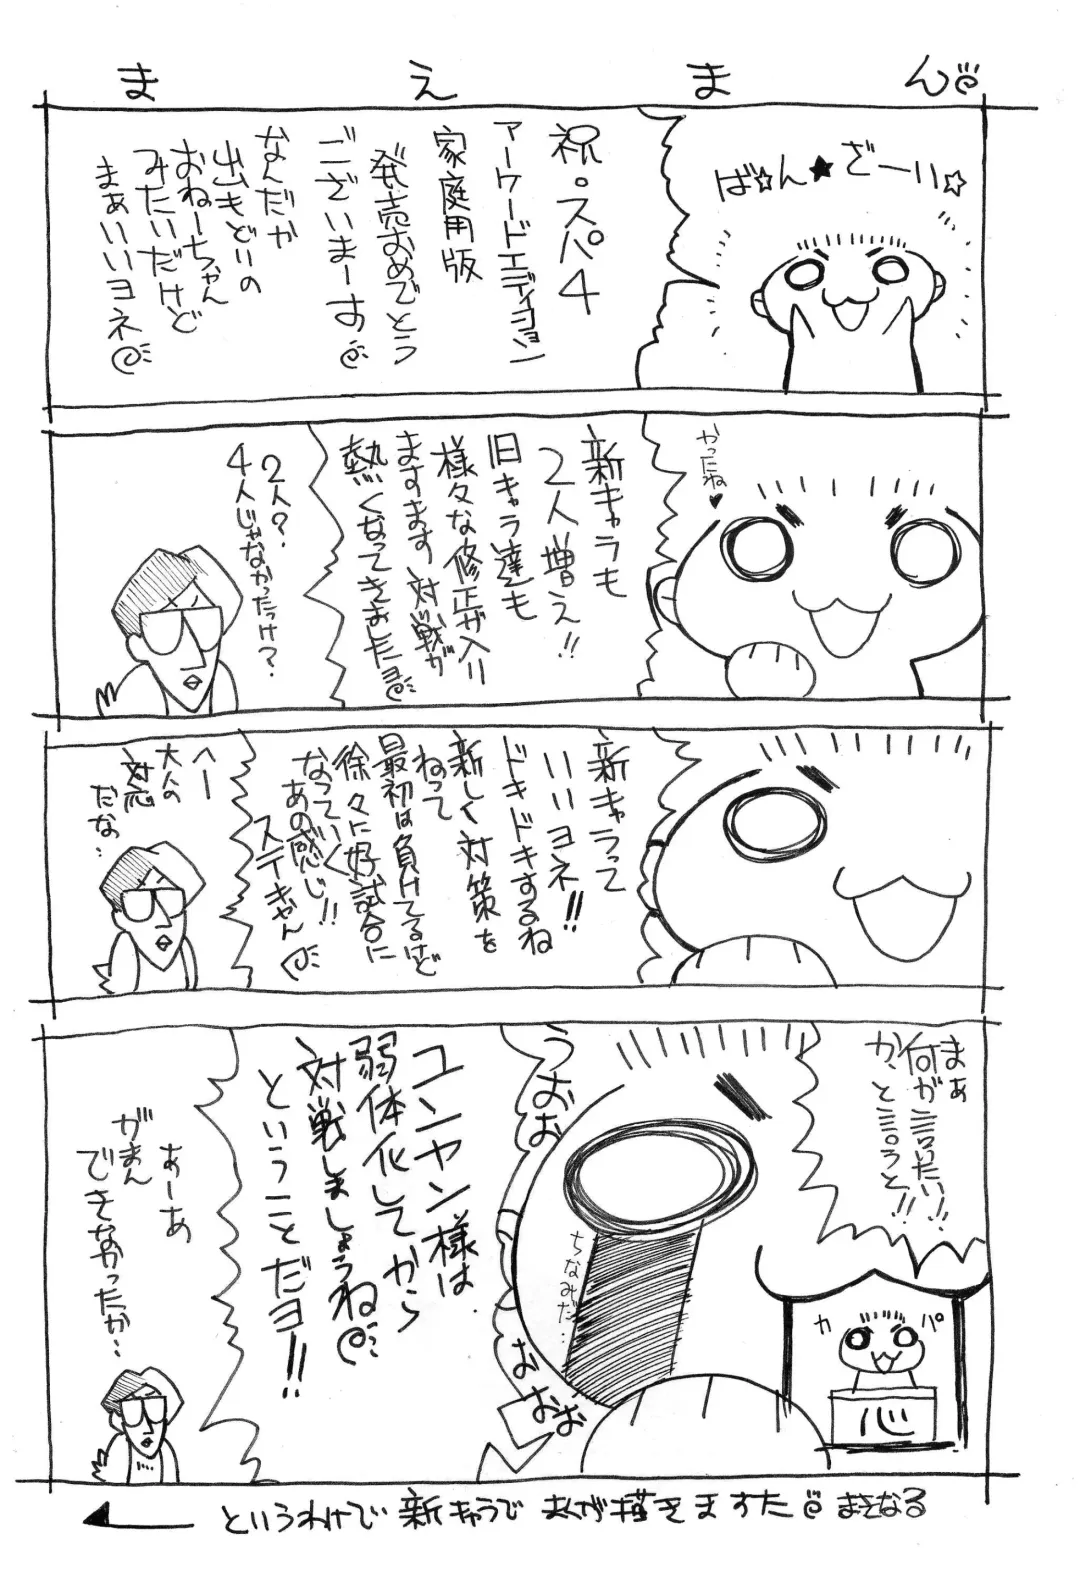 まえまん
ば☆ん★ざーい☆
祝・スパ4
アーケードエディション
家庭用版
発売おめでとう
ございまーす
なんだか
出もどりの
おねーちゃん
みたいだけど
まぁいいヨネ
かったね♥
新キャラも
2人増え!!
旧キャラ達も
様々な修正が入り
ますます対戦が
熱くなってきましたヨ
2人?
4人じゃなかったっけ?
新キャラって
いいヨネ!!
ドキドキするね
新しく対策を
ねって
最初は負けてるけど
徐々に好試合に
なっていく
あの感じ!!
ステキやん
へー
大人の
対応
だな…
まぁ
何が言いたい!!
か、と言うと!!
カパ
心
うおお
おおお
ちなみだ…
ユンヤン様は
弱体化してから
対戦しましょうね
ということだヨー!!
あーあ
がまん
できなかったか…
というわけで新キャラでまんが描きますた まさなる